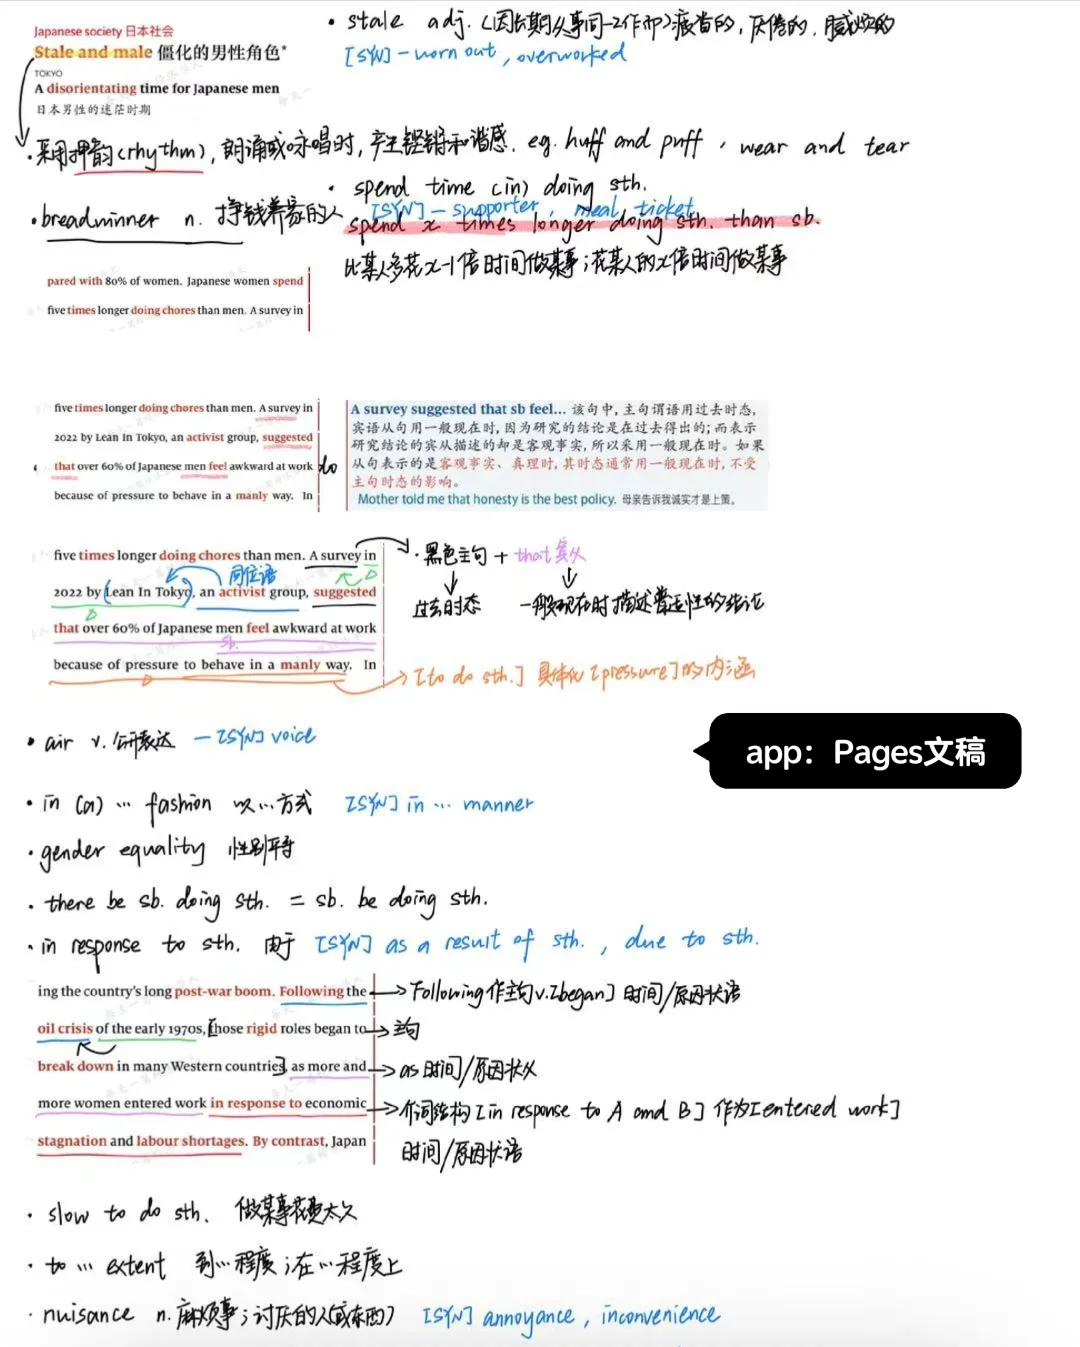 Japanese society 日本社会
Stale and male 僵化的男性角色*
TOKYO
A disorientating time for Japanese men
日本男性的迷茫时期
• stale adj. (因长期从事同一工作而)疲惫的, 厌倦的, 腻烦的
[SYN] - worn out, overworked
• 采用押韵(rhythm), 朗诵或咏唱时, 产生铿锵和谐感. eg. huff and puff, wear and tear
• spend time (in) doing sth.
• breadwinner n. 挣钱养家的人 [SYN] - supporter, meal ticket
spend x times longer doing sth. than sb.
比某人多花x-1倍时间做某事; 花某人的x倍时间做某事
pared with 80% of women. Japanese women spend
five times longer doing chores than men. A survey in
five times longer doing chores than men. A survey in
2022 by Lean In Tokyo, an activist group, suggested
that over 60% of Japanese men feel awkward at work
because of pressure to behave in a manly way. In
do
A survey suggested that sb feel... 该句中, 主句谓语用过去时态,
宾语从句用一般现在时, 因为研究的结论是在过去得出的; 而表示
研究结论的宾从描述的却是客观事实, 所以采用一般现在时。如果
从句表示的是客观事实、真理时, 其时态通常用一般现在时, 不受
主句时态的影响。
Mother told me that honesty is the best policy. 母亲告诉我诚实才是上策。
five times longer doing chores than men. A survey in
同位语
2022 by (Lean In Tokyo), an activist group, suggested
that over 60% of Japanese men feel awkward at work
sb.
because of pressure to behave in a manly way. In
• 黑色主句 + that宾从
过去时态 一般现在时描述普适性的结论
[to do sth.] 具体化[pressure]的内涵
• air v. 公开表达 - [SYN] voice
app：Pages文稿
• in (a) ... fashion 以...方式 [SYN] in ... manner
• gender equality 性别平等
• there be sb. doing sth. = sb. be doing sth.
• in response to sth. 由于 [SYN] as a result of sth., due to sth.
ing the country's long post-war boom. Following the
oil crisis of the early 1970s, [those rigid roles began to
break down in many Western countries], as more and
more women entered work in response to economic
stagnation and labour shortages. By contrast, Japan
Following作主句v.[began] 时间/原因状语
主句
as 时间/原因状从
介词结构[in response to A and B] 作为[entered work]
时间/原因状语
• slow to do sth. 做某事花费太久
• to ... extent 到...程度; 在...程度上
• nuisance n. 麻烦事; 讨厌的人(或东西) [SYN] annoyance, inconvenience